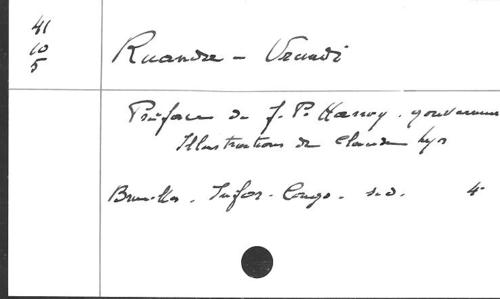 41
10
5
Ruanda - Urundi
Préface de J. P. Harroy. gouverneur
Illustrations de Claude Lyr
Bruxelles. Infor-Congo. s.d. 4